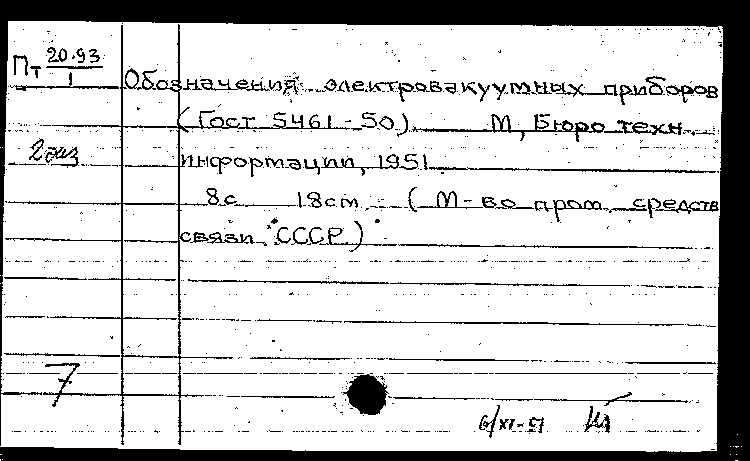 Пт 20.93
1
Обозначения электровакуумных приборов
(Гост 5461-50). М, Бюро техн.
2 экз
информации, 1951.
8с 18см (М-во пром. средств
связи СССР)
7
6/XI-51